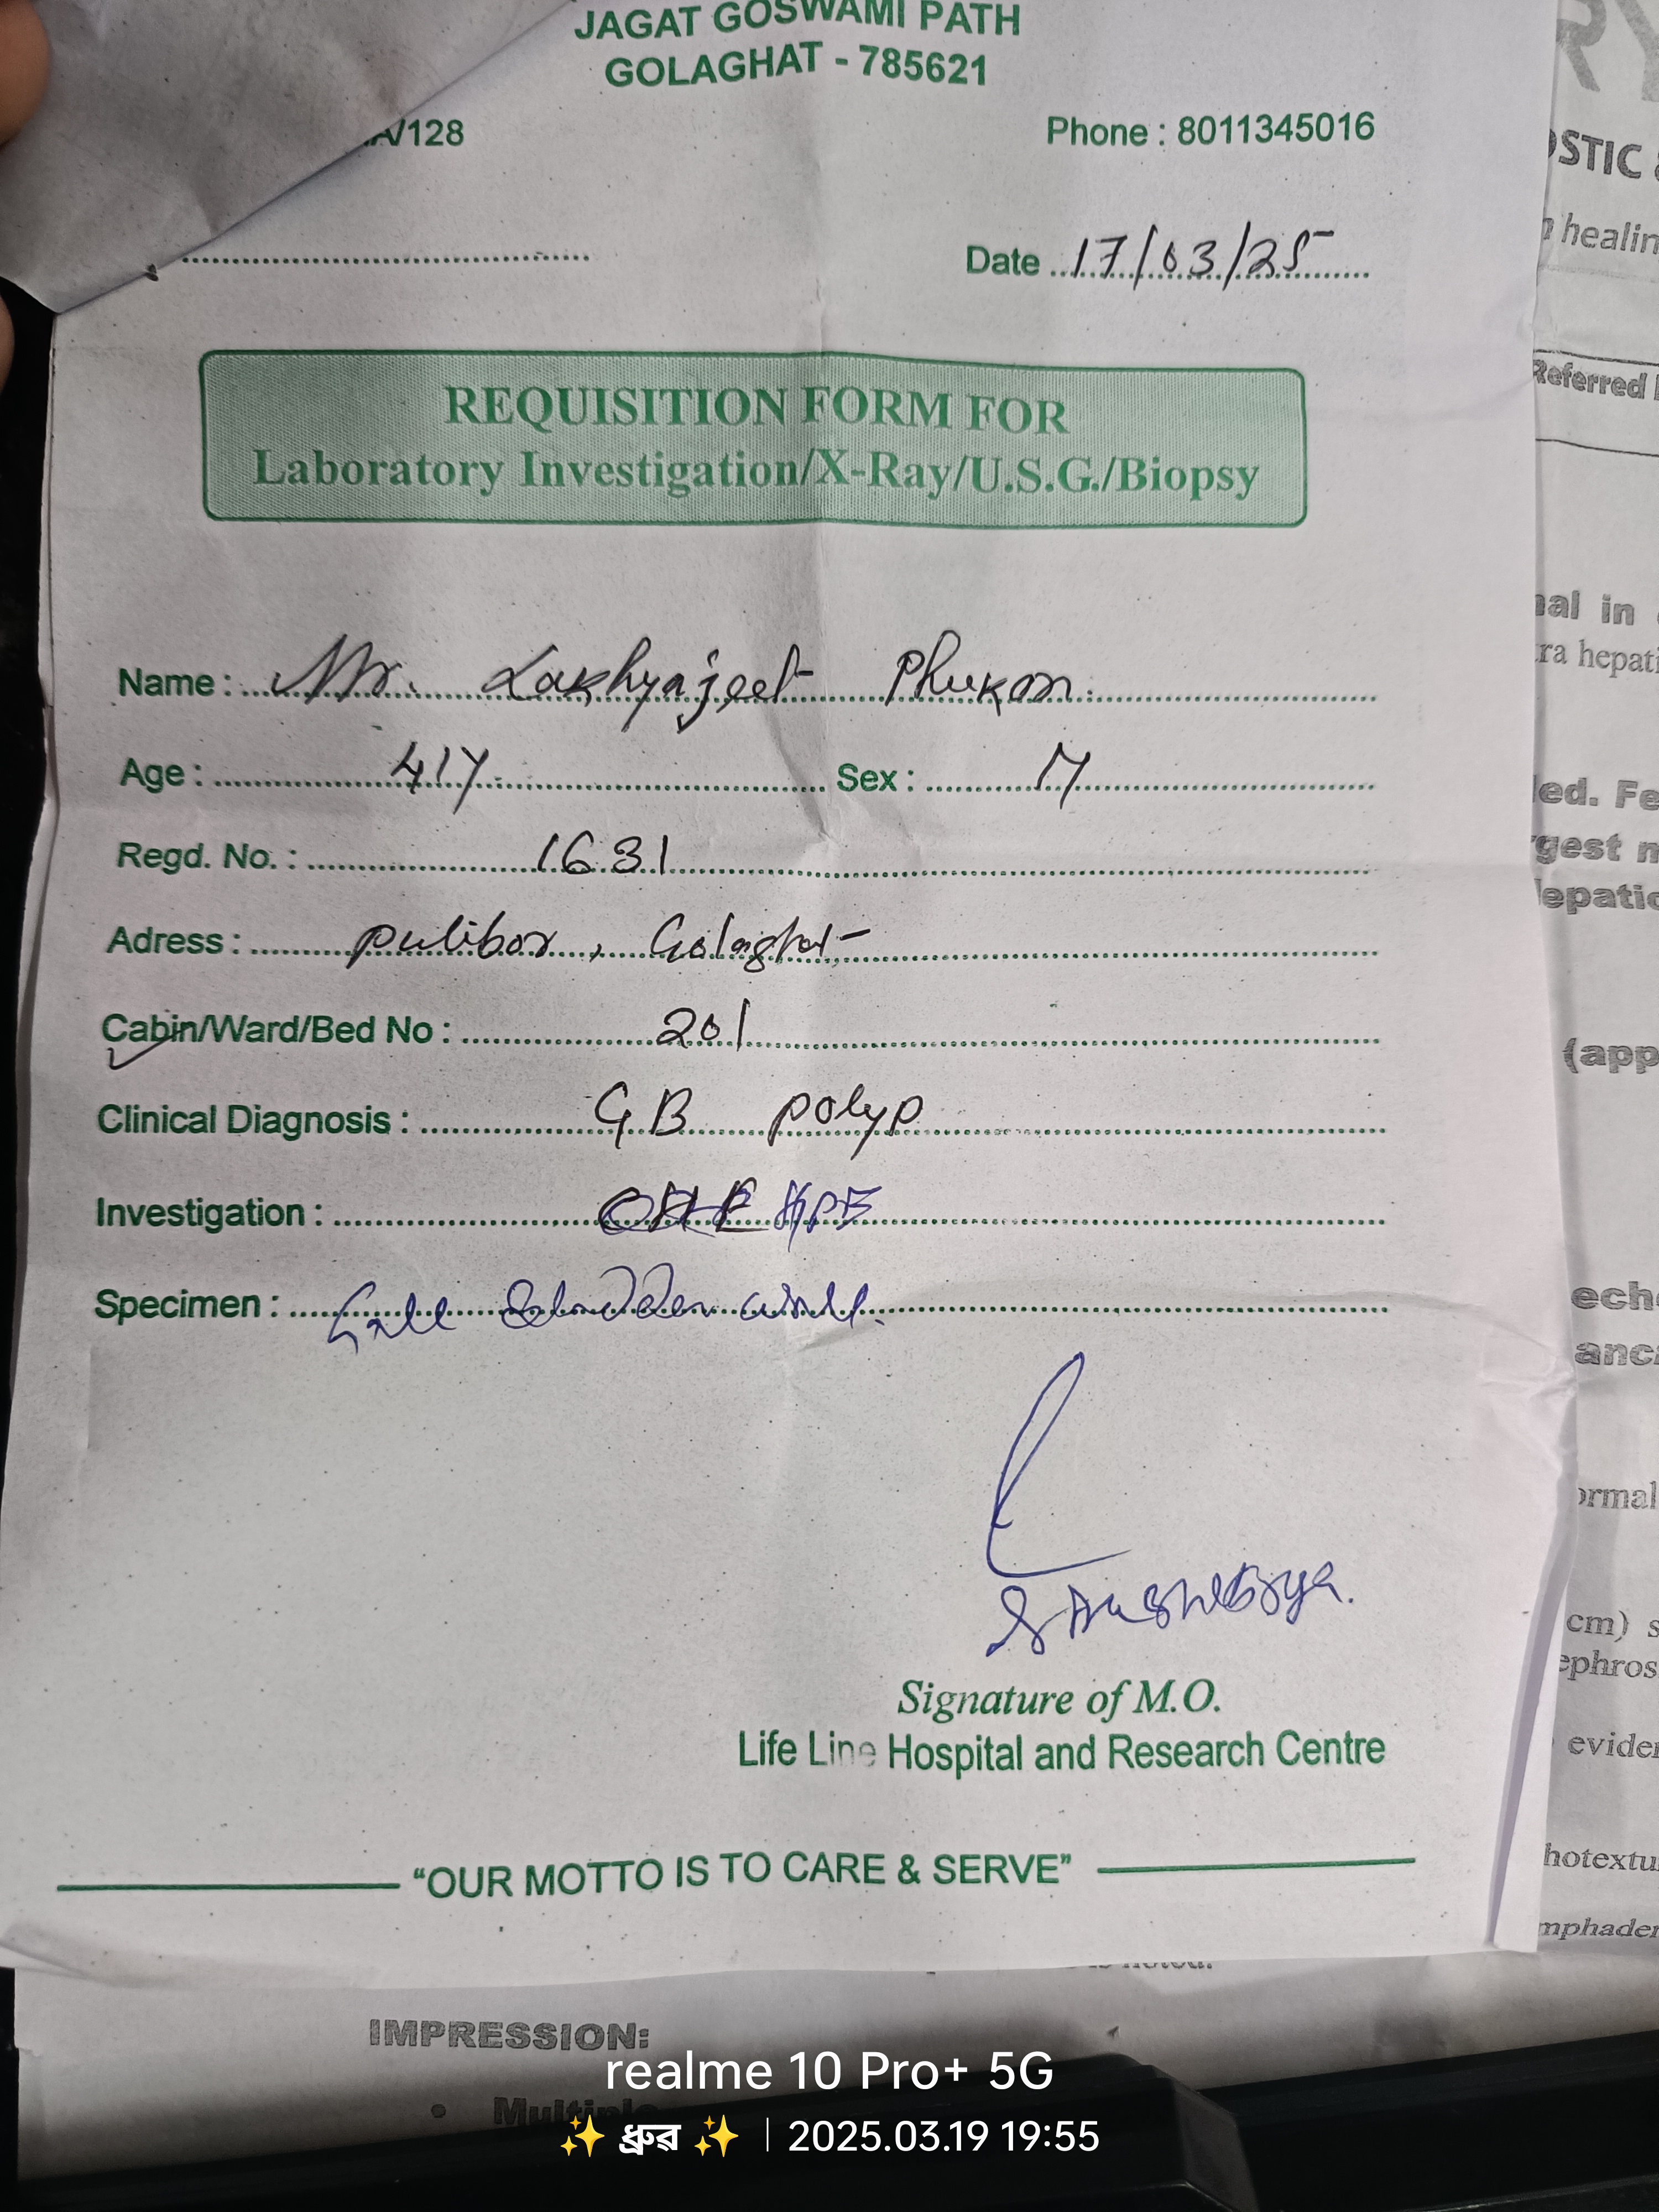 JAGAT GOSWAMI PATH
GOLAGHAT - 785621
A/128
Phone : 8011345016
Date 17/03/25
REQUISITION FORM FOR
Laboratory Investigation/X-Ray/U.S.G./Biopsy
Name : Mr. Lakhyajeet Phukan
Age : 41Y Sex : M
Regd. No. : 1631
Adress : Pulibor, Golaghat
Cabin/Ward/Bed No : 201
Clinical Diagnosis : GB polyp
Investigation : HPE
Specimen : Gall Bladder wall.
Signature of M.O.
Life Line Hospital and Research Centre
"OUR MOTTO IS TO CARE & SERVE"
OSTIC
healin
Referred
nal in
ra hepati
led. Fe
gest
epatic
(app
ech
anc
ormal
cm) s
ephros
evider
hotextu
mphader
noted.
IMPRESSION:
• Multiple
realme 10 Pro+ 5G
✨ ধ্ৰুৱ ✨ | 2025.03.19 19:55